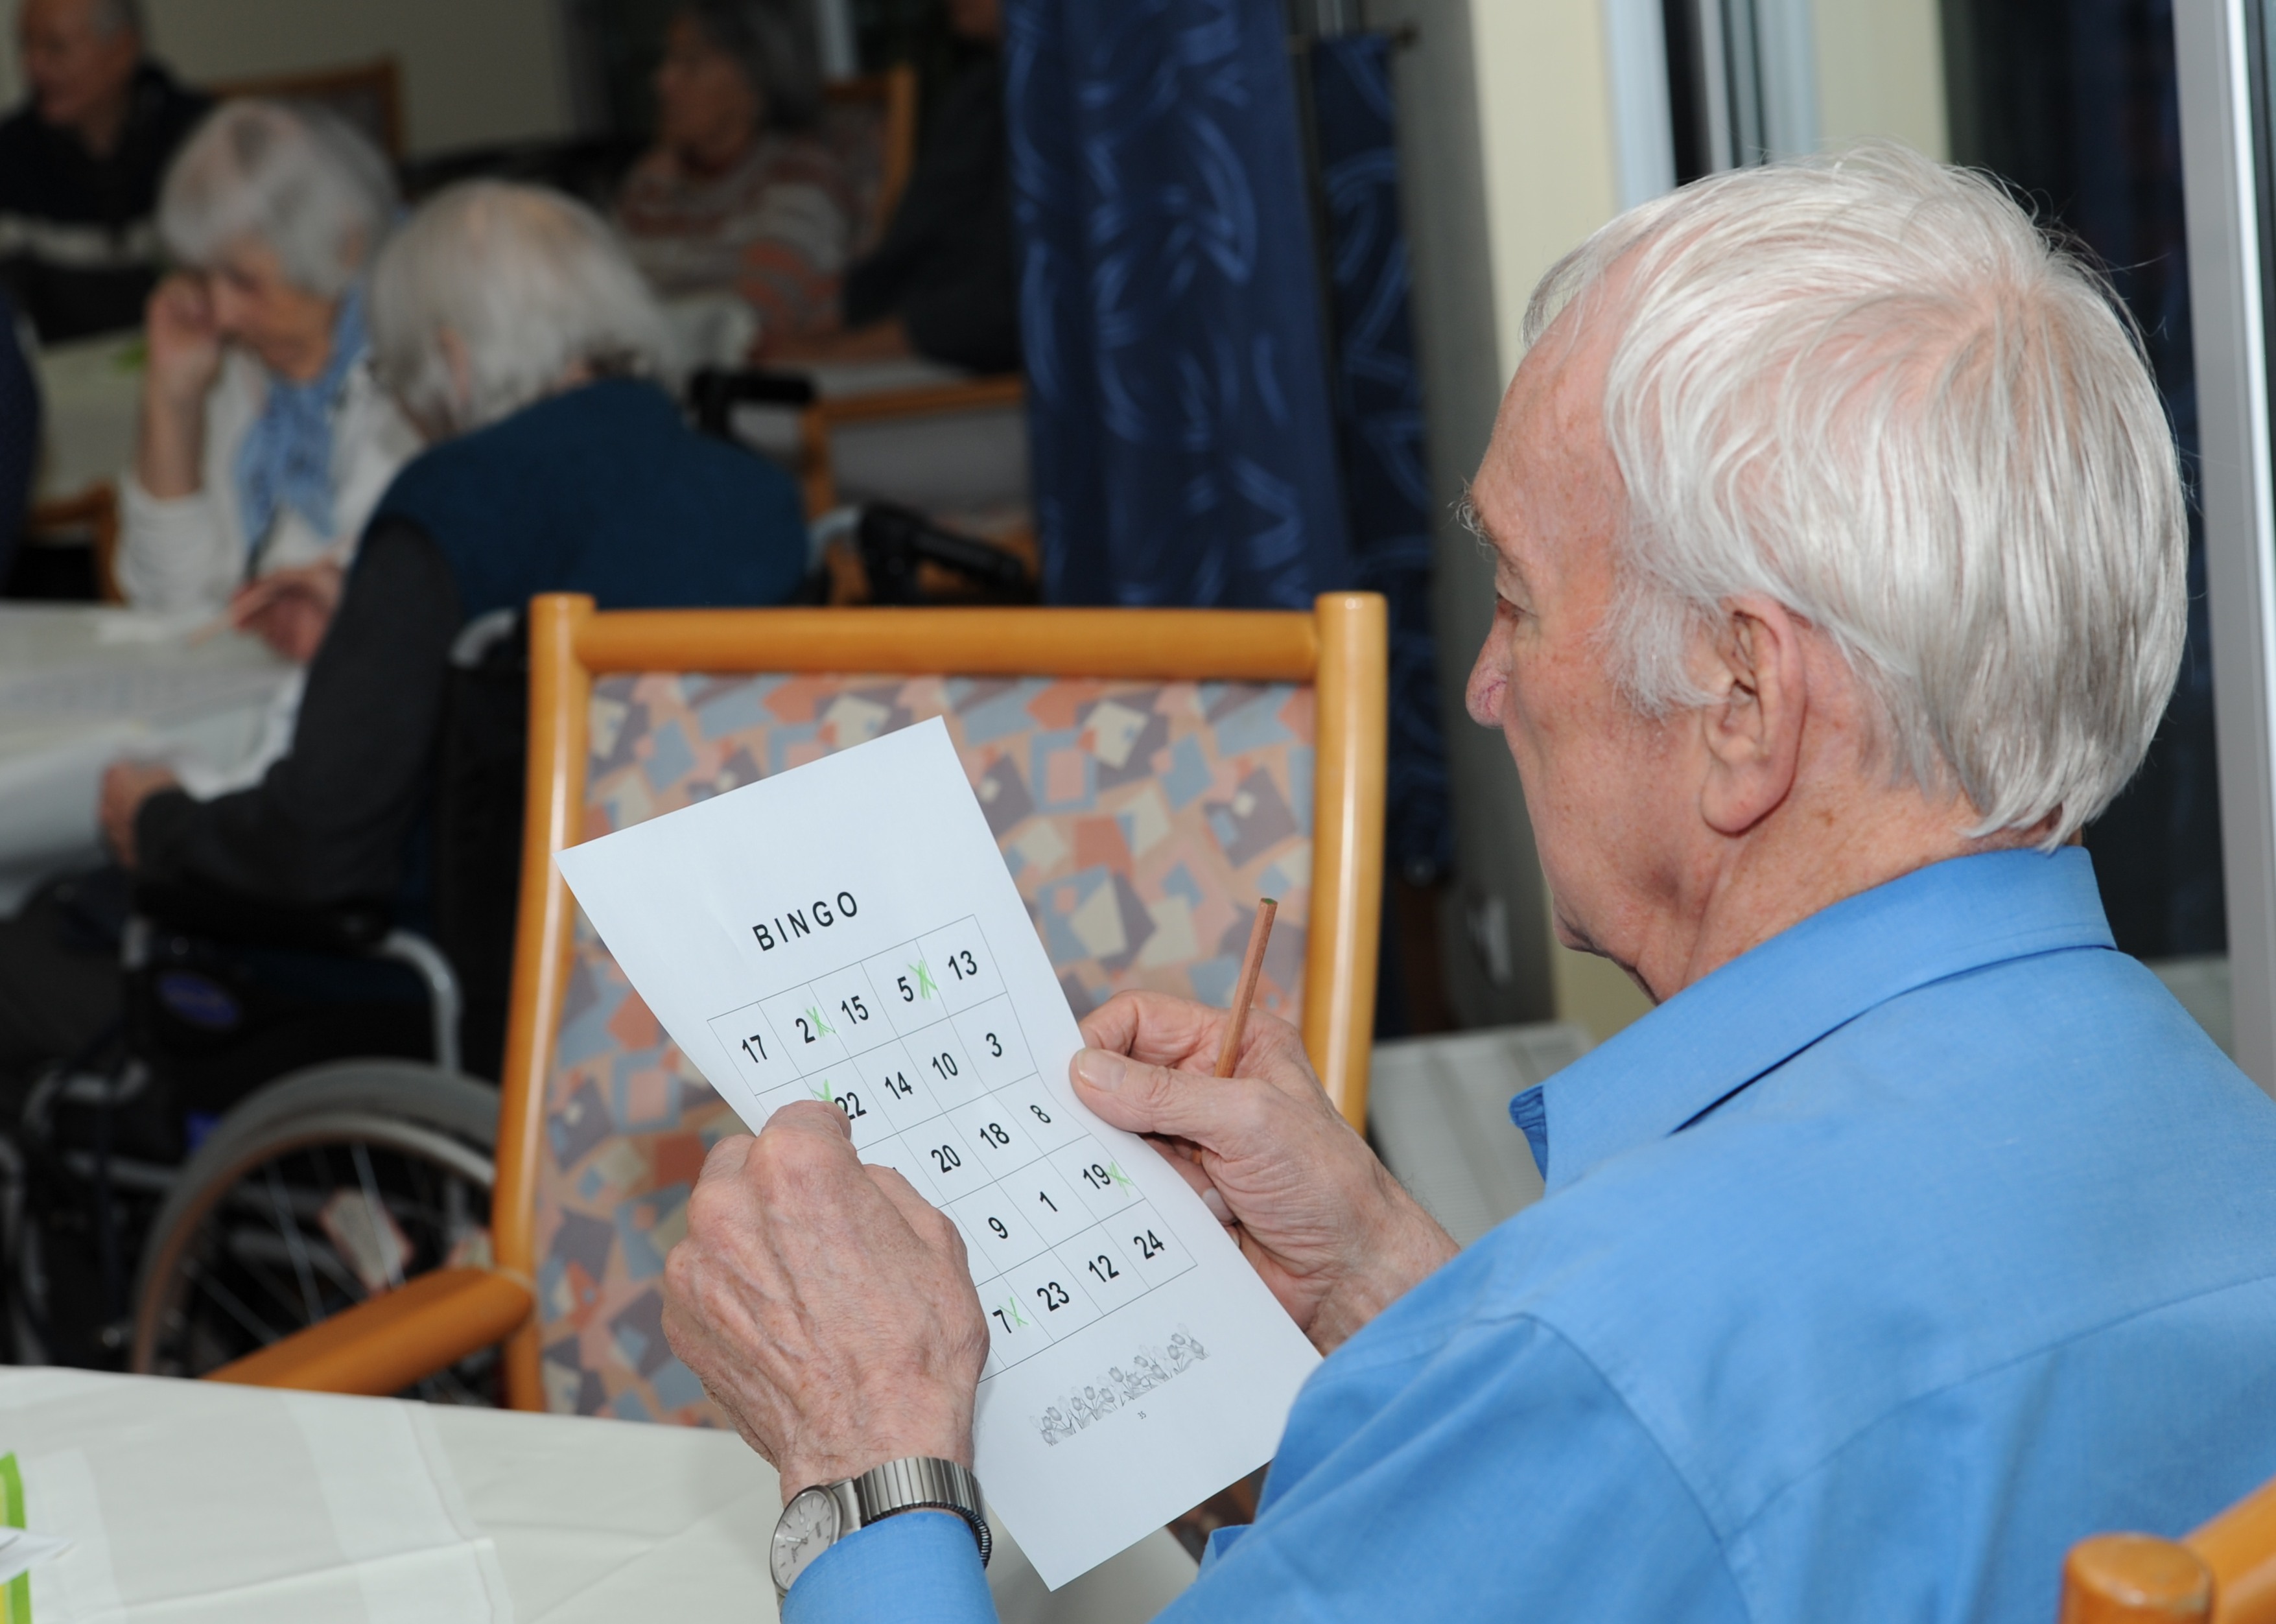 BINGO
17 2 15 5 13
22 14 10 3
20 18 8
9 1 19
7 23 12 24
35